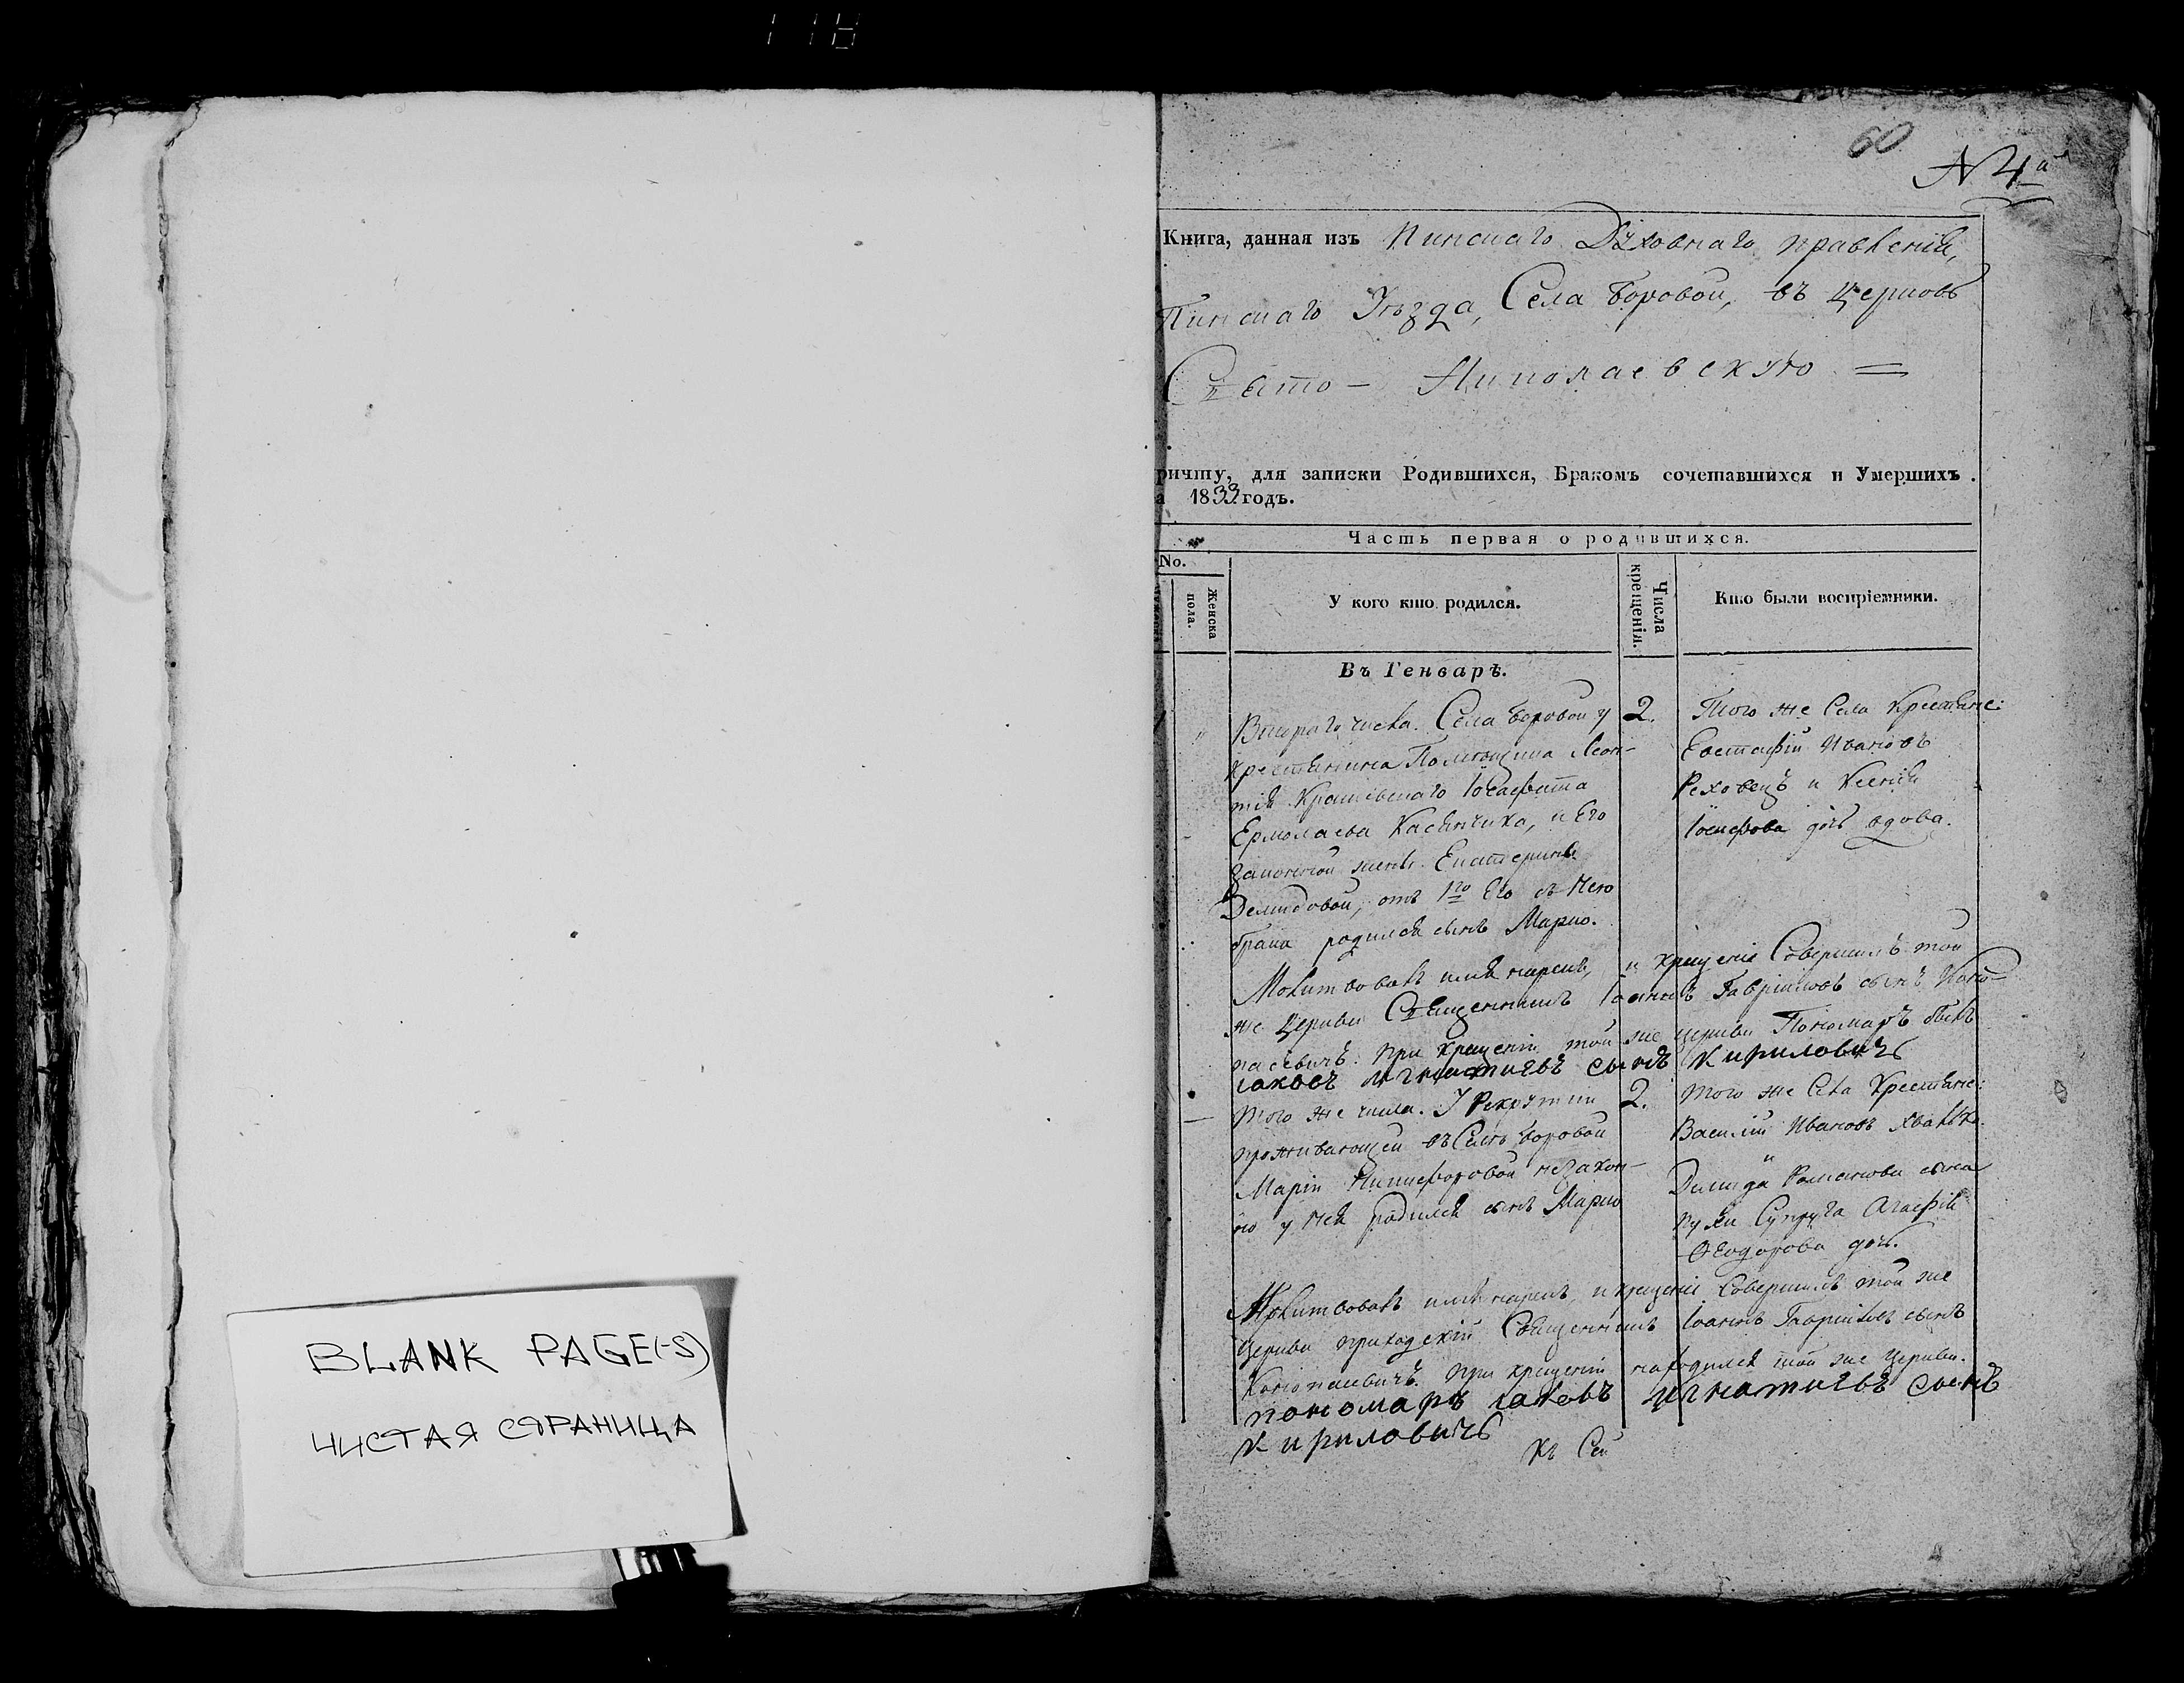 118
60
N 4й
Книга, данная изъ Пинскаго Духовнаго правленія,
Пинскаго Уѣзда, Села Боровой, въ церковь
Свято – Николаевскую =
ричту, для записки Родившихся, Бракомъ сочетавшихся и Умершихъ.
а 1833 годъ.
Часть первая о родившихся.
No.
Женска пола.
У кого кто родился.
Числа крещенія.
Кто были воспріемники.
Въ Генварѣ.
Втораго числа. Села Боровой у
крестьянина Помѣщика Леон-
тія Іосафата
Ермолаева Касянчика, и Его
законной жены Екатерины
Демидовой, отъ 1го Его съ Нею
брака родился сынъ Марко.
2.
Того же Села Крестьяне:
Евстафій Ивановъ
Реховецъ и Ксенія
Іосифова дочь вдова.
Молитвовалъ имя нарекъ, и крещеніе Совершилъ той
же Церкви Священникъ Іоаннъ Гавріиловъ сынъ Коно-
пасевичъ. При крещеніи той же церкви Пономарь былъ
іаковъ игнатиевъ сынъ кириловичь
Того же числа. У Рекрутки
проживающей въ Селѣ Боровой
Маріи Никифоровой незакон-
но у Нея родился сынъ Марко
2.
Того же Села Крестьяне:
Василій Ивановъ
и
Демида Романова сына
Супруга Агафія
Ѳеодорова дочь.
Молитвовалъ имя нарекъ, и крещеніе Совершилъ той же
Церкви приходскій Священникъ Іоаннъ Гавріиловъ сынъ
Конопасевичъ. При крещеніи находился той же Церкви.
пономарь іаковъ игнатиевъ сынъ
кириловичь
Къ Сей
BLANK PAGE(-S)
ЧИСТАЯ СТРАНИЦА